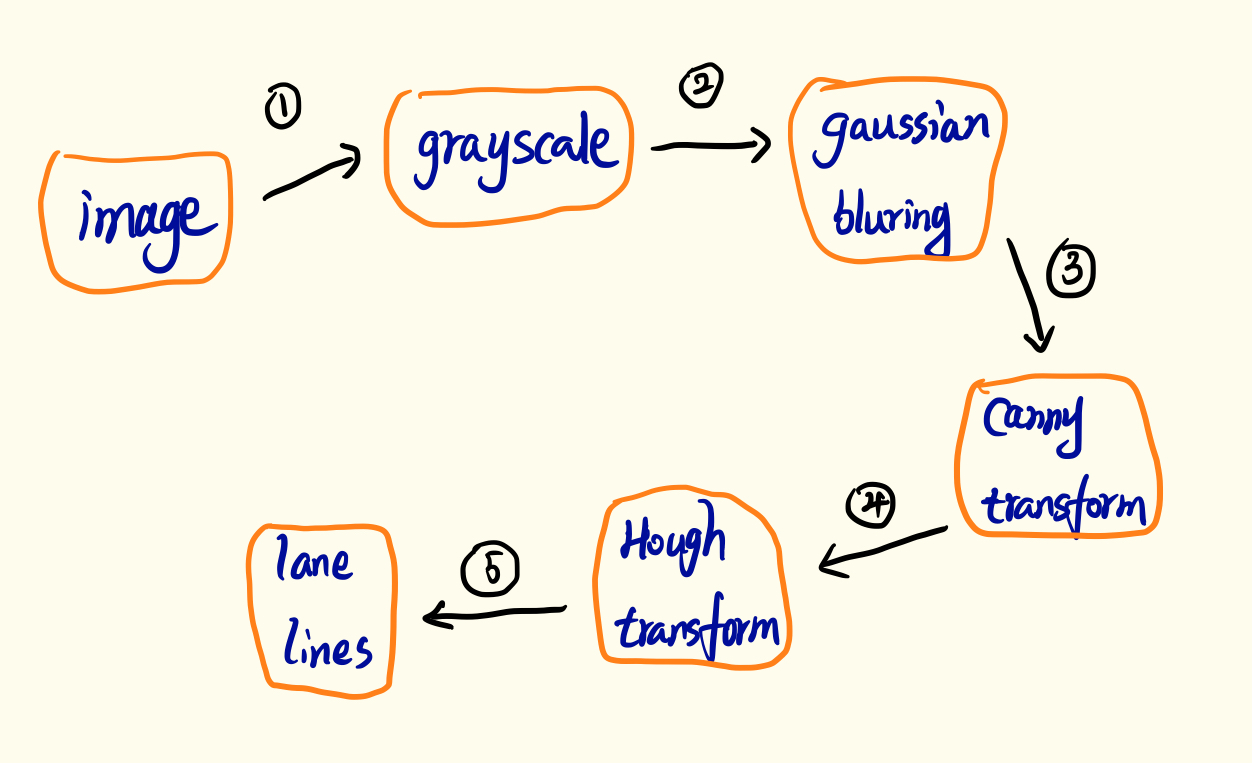 ①
image
grayscale
②
gaussian
bluring
③
Canny
transform
④
Hough
transform
⑤
lane
lines